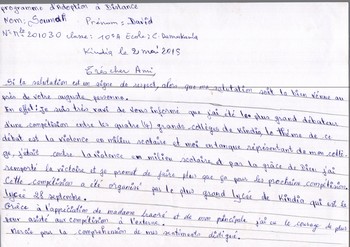 programme d'Adoption à Distance
Nom: Soumah Prénom: David
N° Mle 201030 classe: 10ª A Ecole: C Damakania
Kindia le 2 mai 2015
Trèscher Ami
Si la salutation est un signe de respect, alors que ma salutation soit la bien venue au
près de votre auguste personne.
En effet je suis très ravi de vous informé que j'ai été le plus grand débateur
d'une compétition entre les quatre (4) grands collèges de Kindia. le thème de ce
débat est la violence en milieu scolaire et moi entanque représentant de mon collè-
ge, j'étais contre la violence en milieu scolaire, et par la grâce de Dieu j'ai
remporté la victoire et je promet de faire plus que ça pour les prochaines compétition.
Cette compétition a été organisé par le plus grand lycée de Kindia qui est le
lycée 28 septembre.
Grâce à l'appréciation de madame et de mon principale j'ai eu le courage de plus
pour assisté aux compétition à l'externe.
Mercie pour la compréhension de mes sentiments distigué.